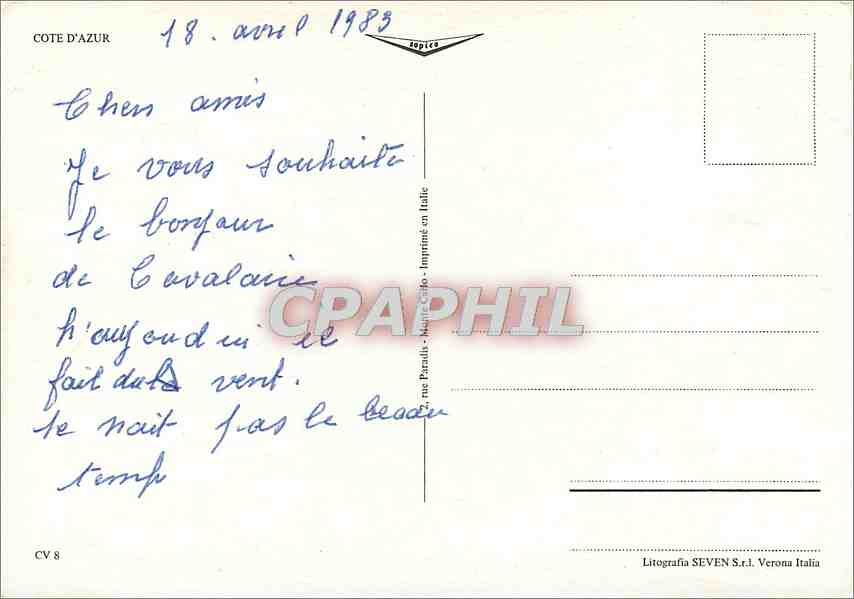 COTE D'AZUR
18. avril 1983
sopico
Chers amis
Je vous souhaite
le bonjour
de Cavalaire
h'aujond ui il
fait du vent.
se nait pas le beaau
temp
2, rue Paradis - Monte Carlo - Imprimé en Italie
CPAPHIL
CV 8
Litografia SEVEN S.r.l. Verona Italia